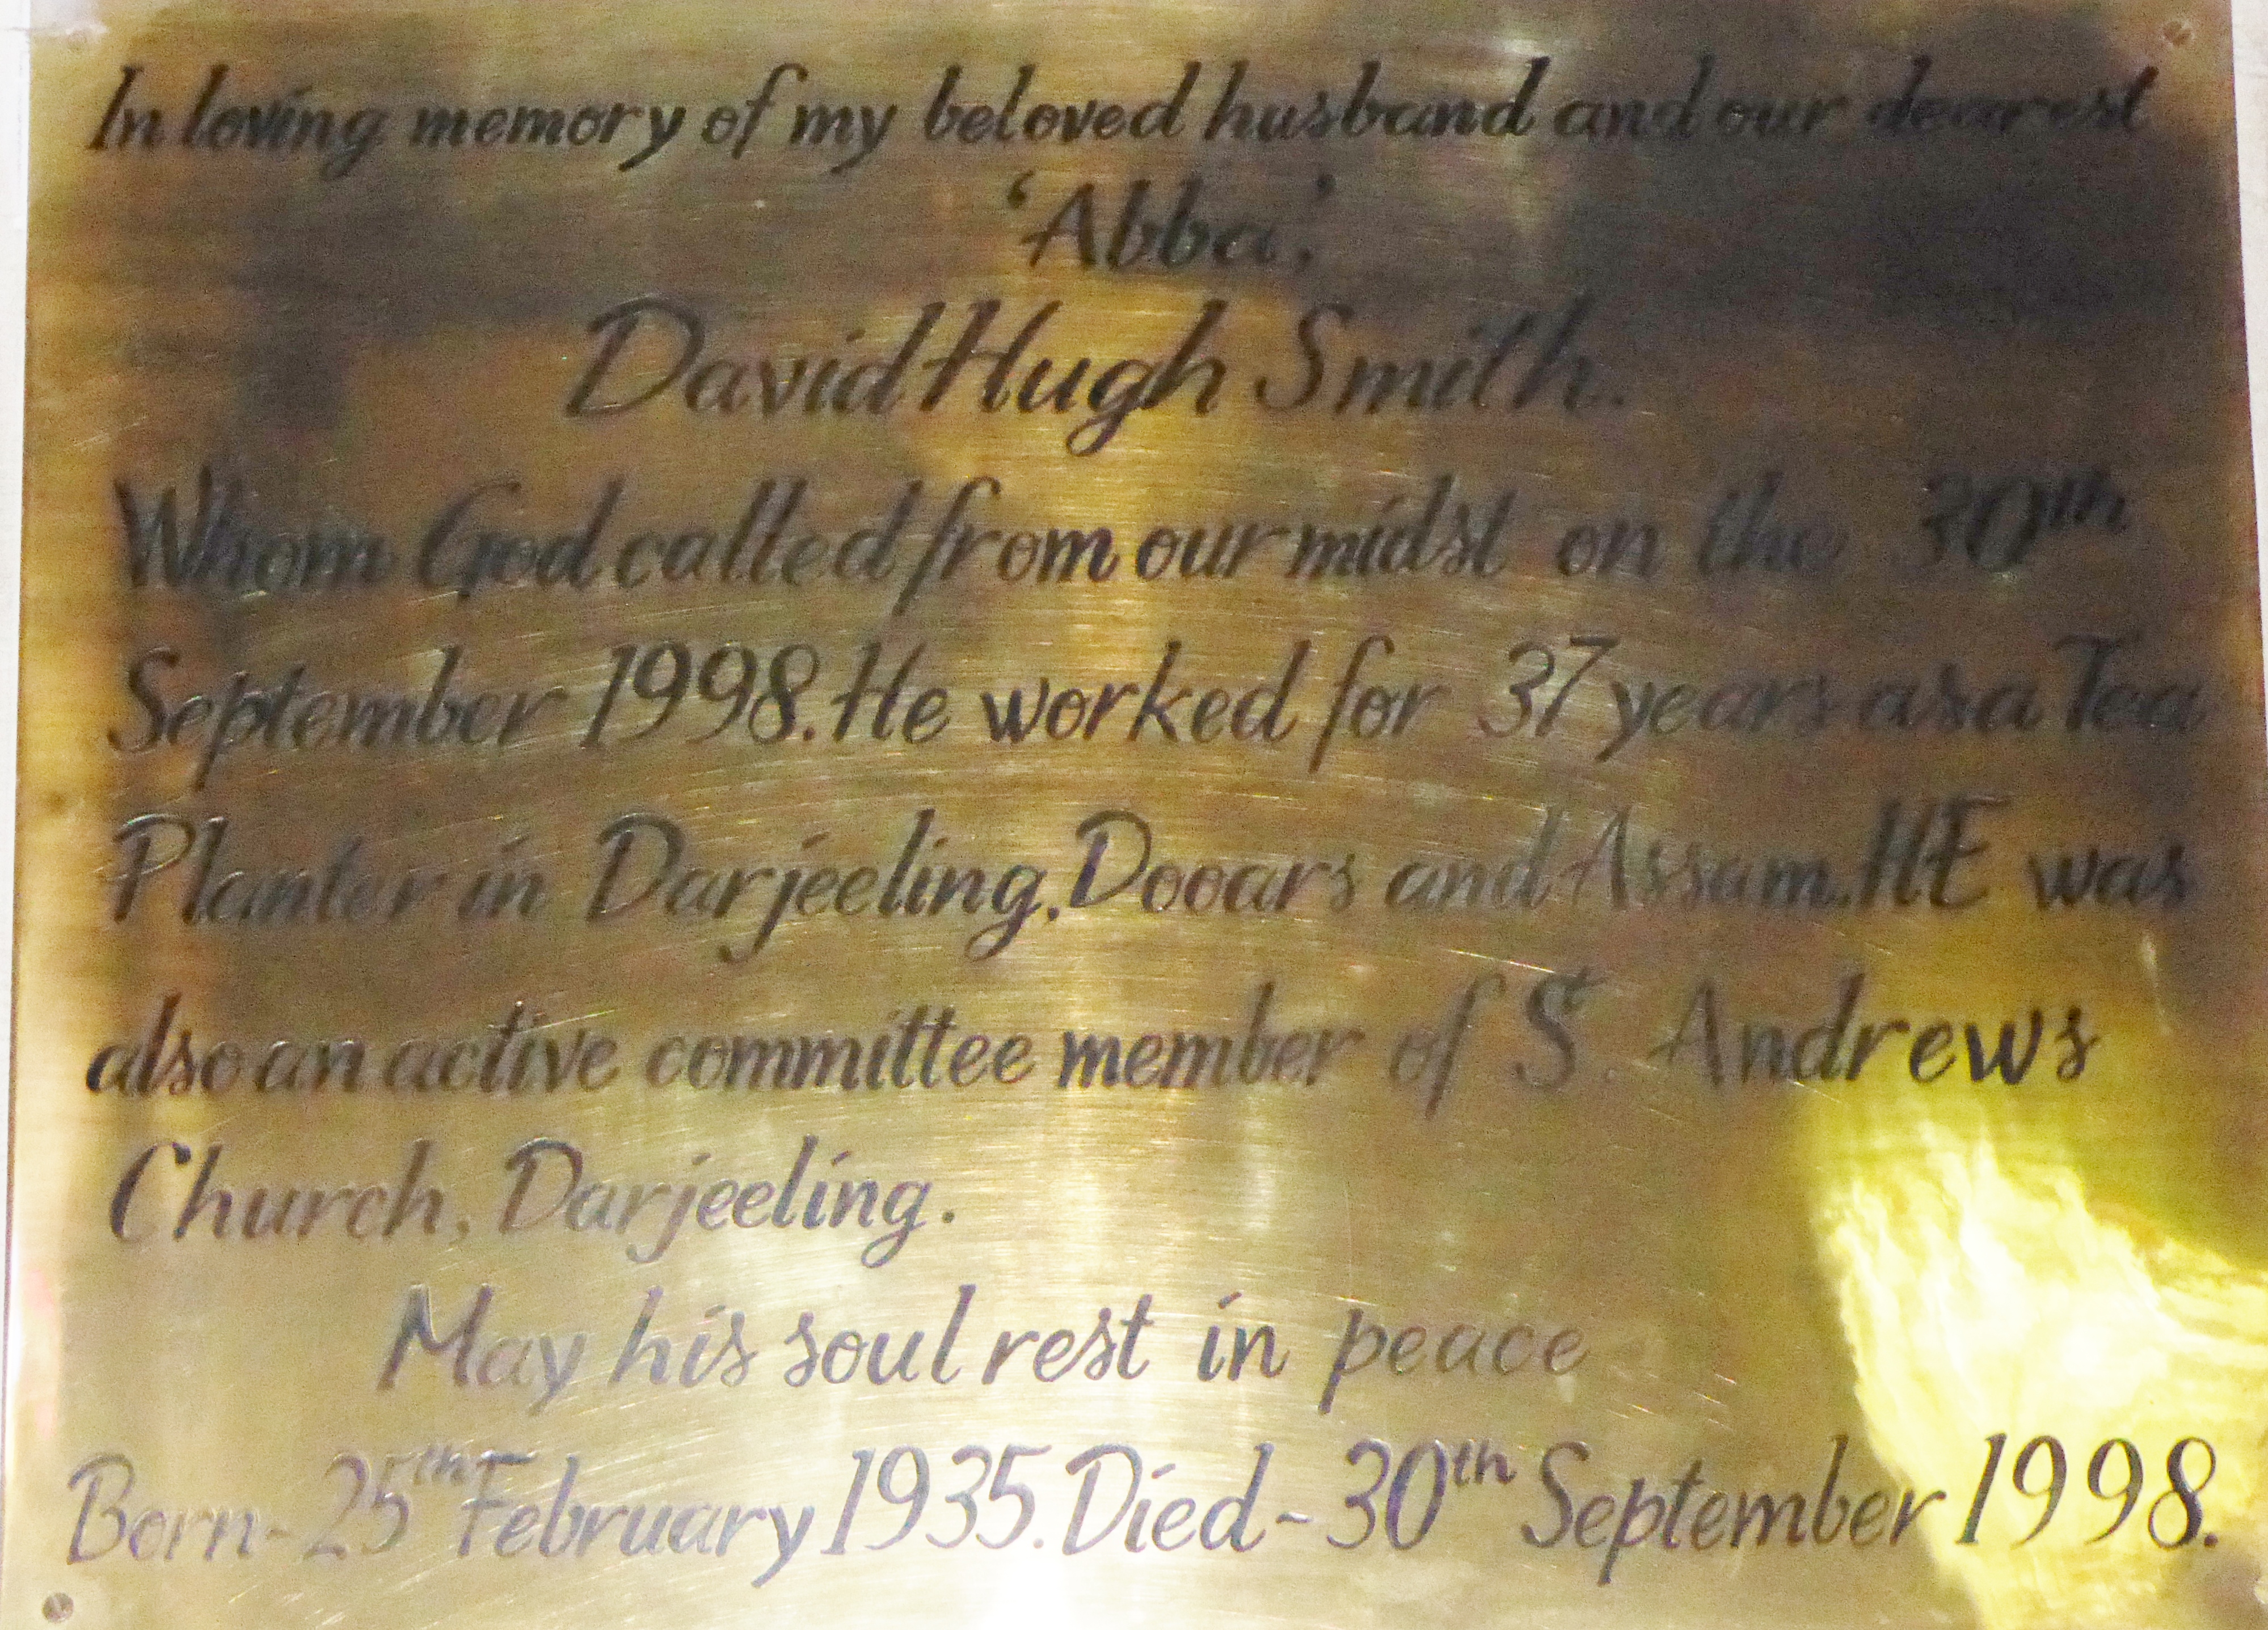 In loving memory of my beloved husband and our dearest
'Abba',
David Hugh Smith.
Whom God called from our midst on the 30th
September 1998. He worked for 37 years as a Tea
Planter in Darjeeling, Dooars and Assam. HE was
also an active committee member of St. Andrews
Church, Darjeeling.
May his soul rest in peace
Born - 25th February 1935. Died - 30th September 1998.